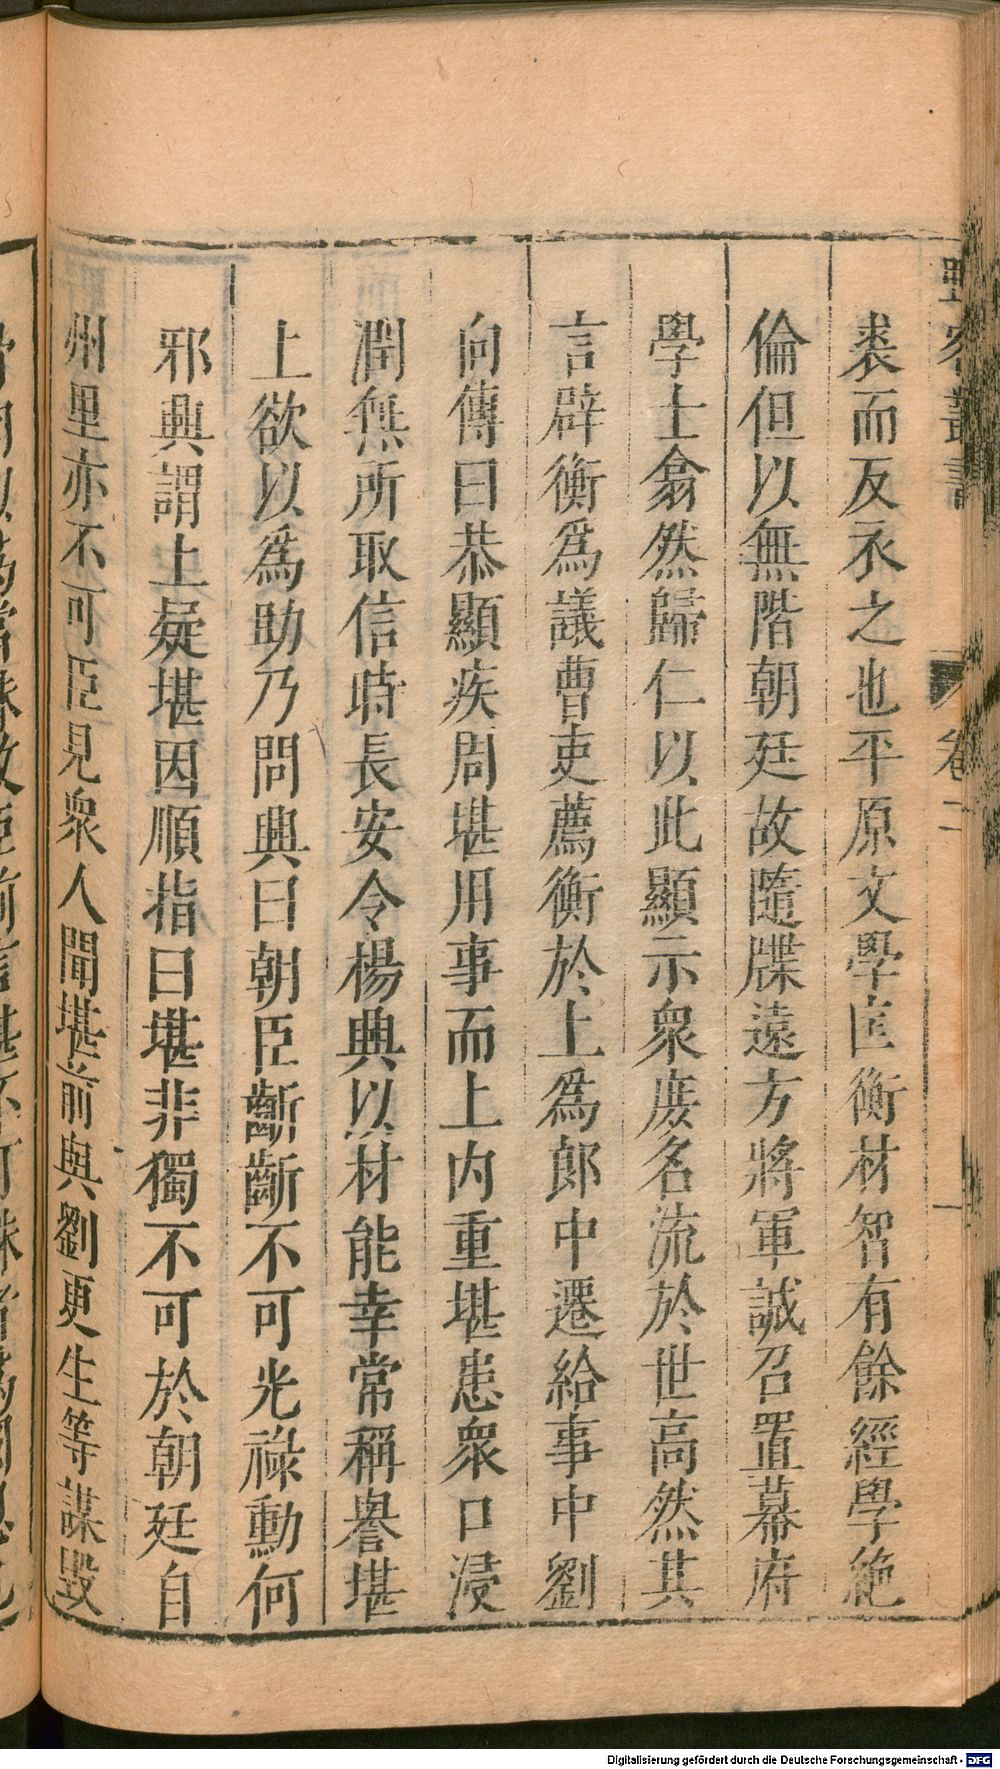 野客叢書 卷二 一
裘而反衣之也平原文學匡衡材智有餘經學絶
倫但以無階朝廷故隨牒遠方將軍誠召置幕府
學士翕然歸仁以此顯示衆庻名流於世高然其
言辟衡爲議曹吏薦衡於上爲郎中遷給事中劉
向傳曰恭顯疾周堪用事而上内重堪患衆口浸
潤無所取信時長安令楊興以材能幸常稱譽堪
上欲以爲助乃問興曰朝臣齗齗不可光祿勳何
邪興謂上疑堪因順指曰堪非獨不可於朝廷自
州里亦不可臣見衆人聞堪前與劉更生等謀毀
Digitalisierung gefördert durch die Deutsche Forschungsgemeinschaft - DFG